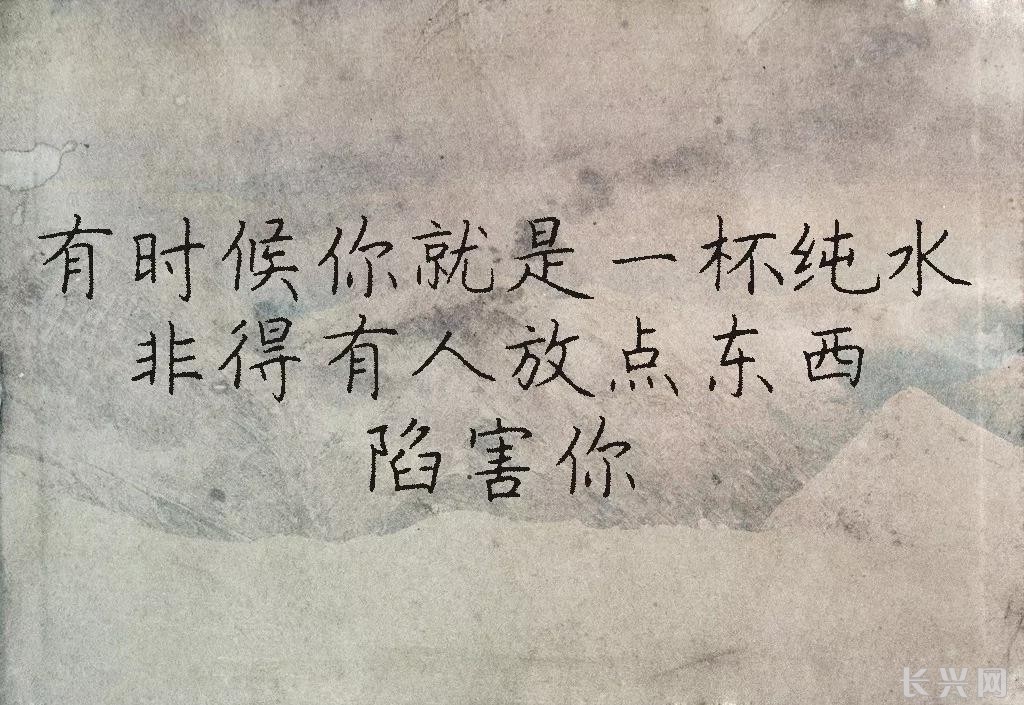 有时候你就是一杯纯水
非得有人放点东西
陷害你
长兴网